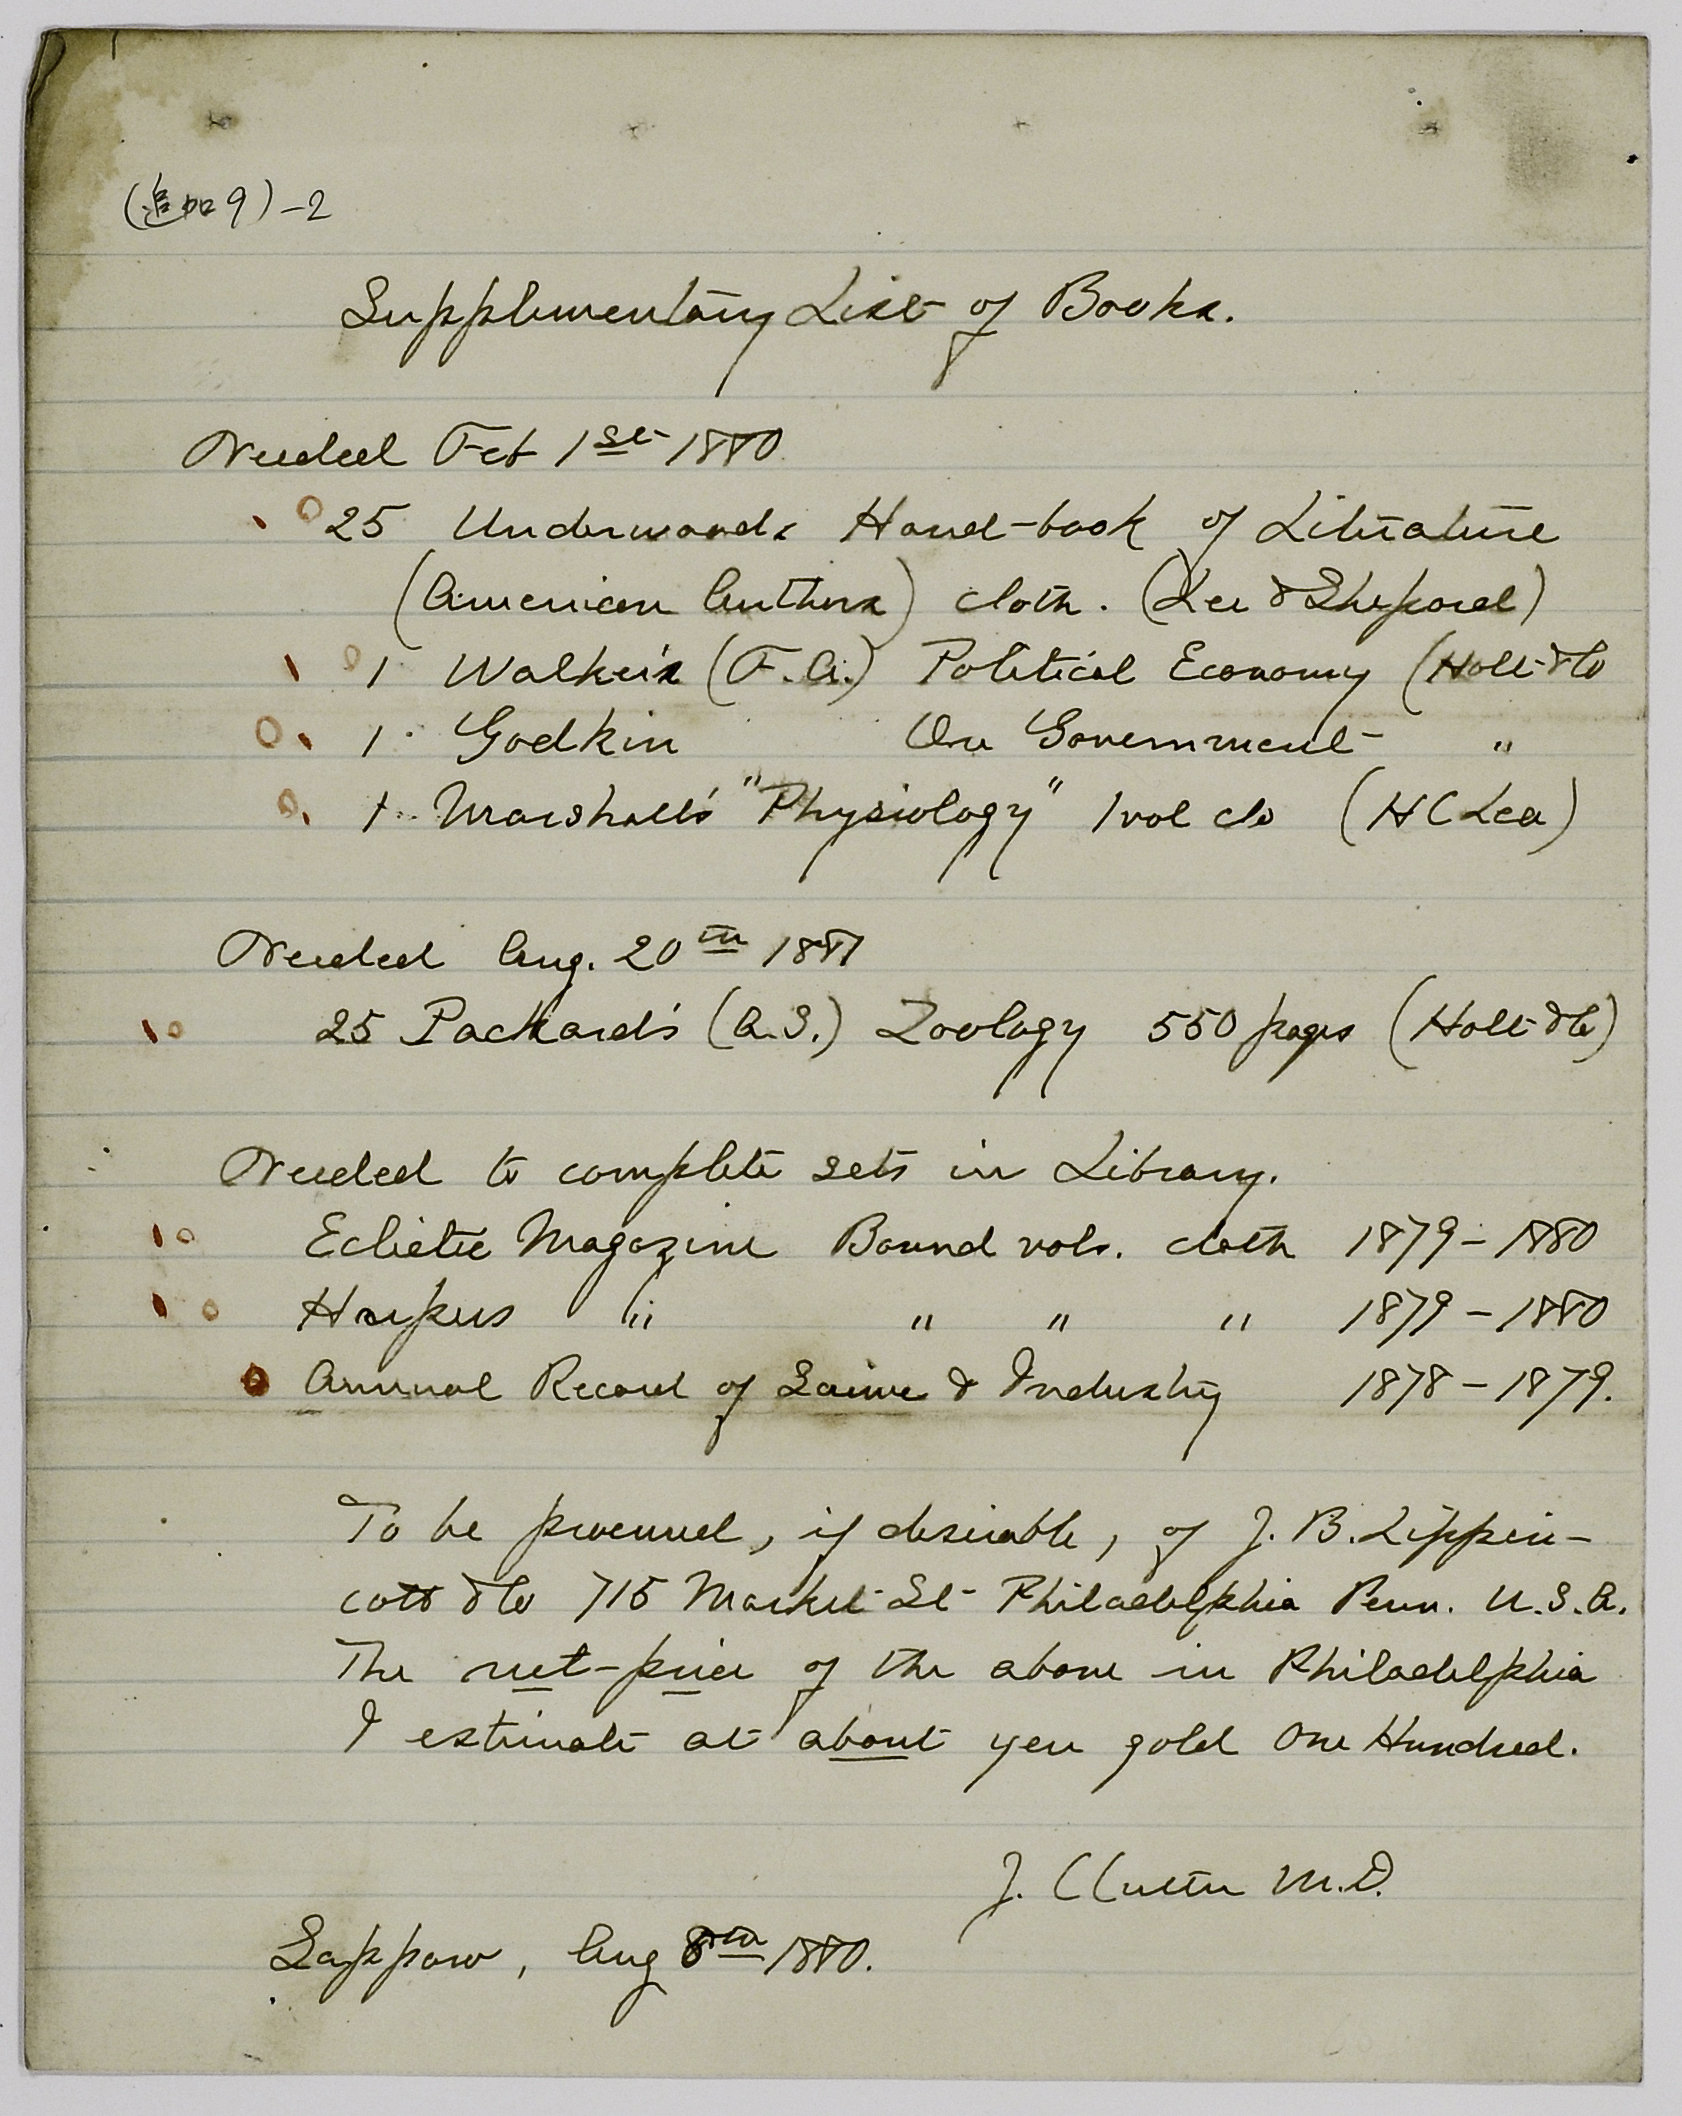 (追加9)-2
Supplementary List of Books.
Needed Feb 1st 1880
25 Underwoods Hand-book of Literature
(American Authors) cloth. (Lee & Shepard)
1 Walker's (F.A.) Political Economy (Holt & Co
1 Godkin On Government "
1 Marshall's "Physiology" 1 vol clo (H C Lea)
Needed Aug. 20th 1881
25 Packard's (A.S.) Zoology 550 pages (Holt & Co)
Needed to complete sets in Library.
Eclectic Magazine Bound vols. cloth 1879-1880
Harpers " " " " 1879-1880
Annual Record of Science & Industry 1878-1879.
To be procured, if desirable, of J. B. Lippin-
cott & Co 715 Market St Philadelphia Penn. U.S.A.
The net-price of the above in Philadelphia
I estimate at about yen gold One Hundred.
J. C Cutter M.D.
Sapporo, Aug 8th 1880.